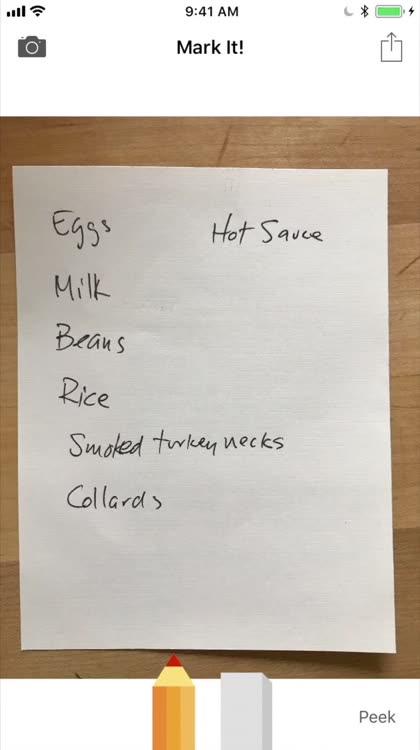 9:41 AM
Mark It!
Eggs
Hot Sauce
Milk
Beans
Rice
Smoked turkey necks
Collards
Peek